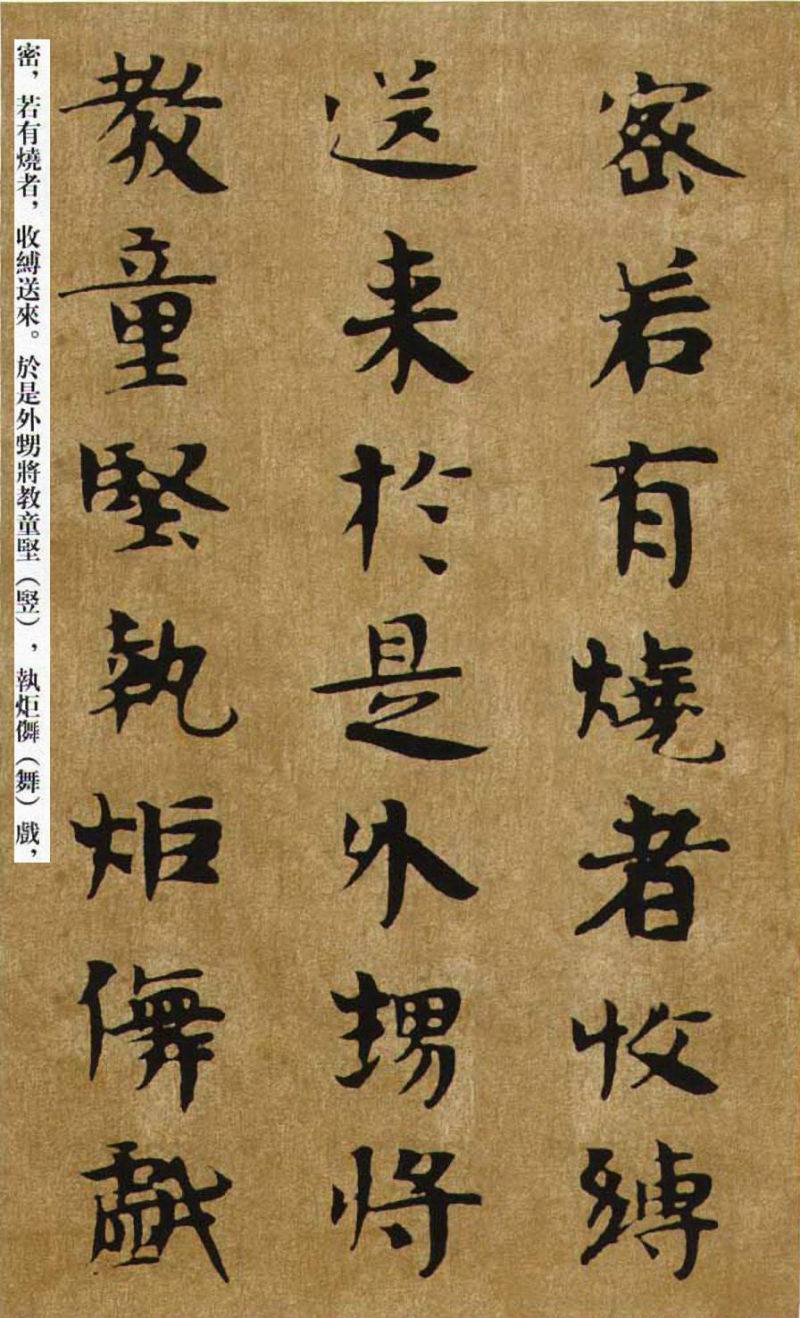 密若有燒者收縛
送来於是外甥将
教童堅執炬儛戲
密，若有燒者，收縛送來。於是外甥將教童堅（竪），執炬儛（舞）戲，